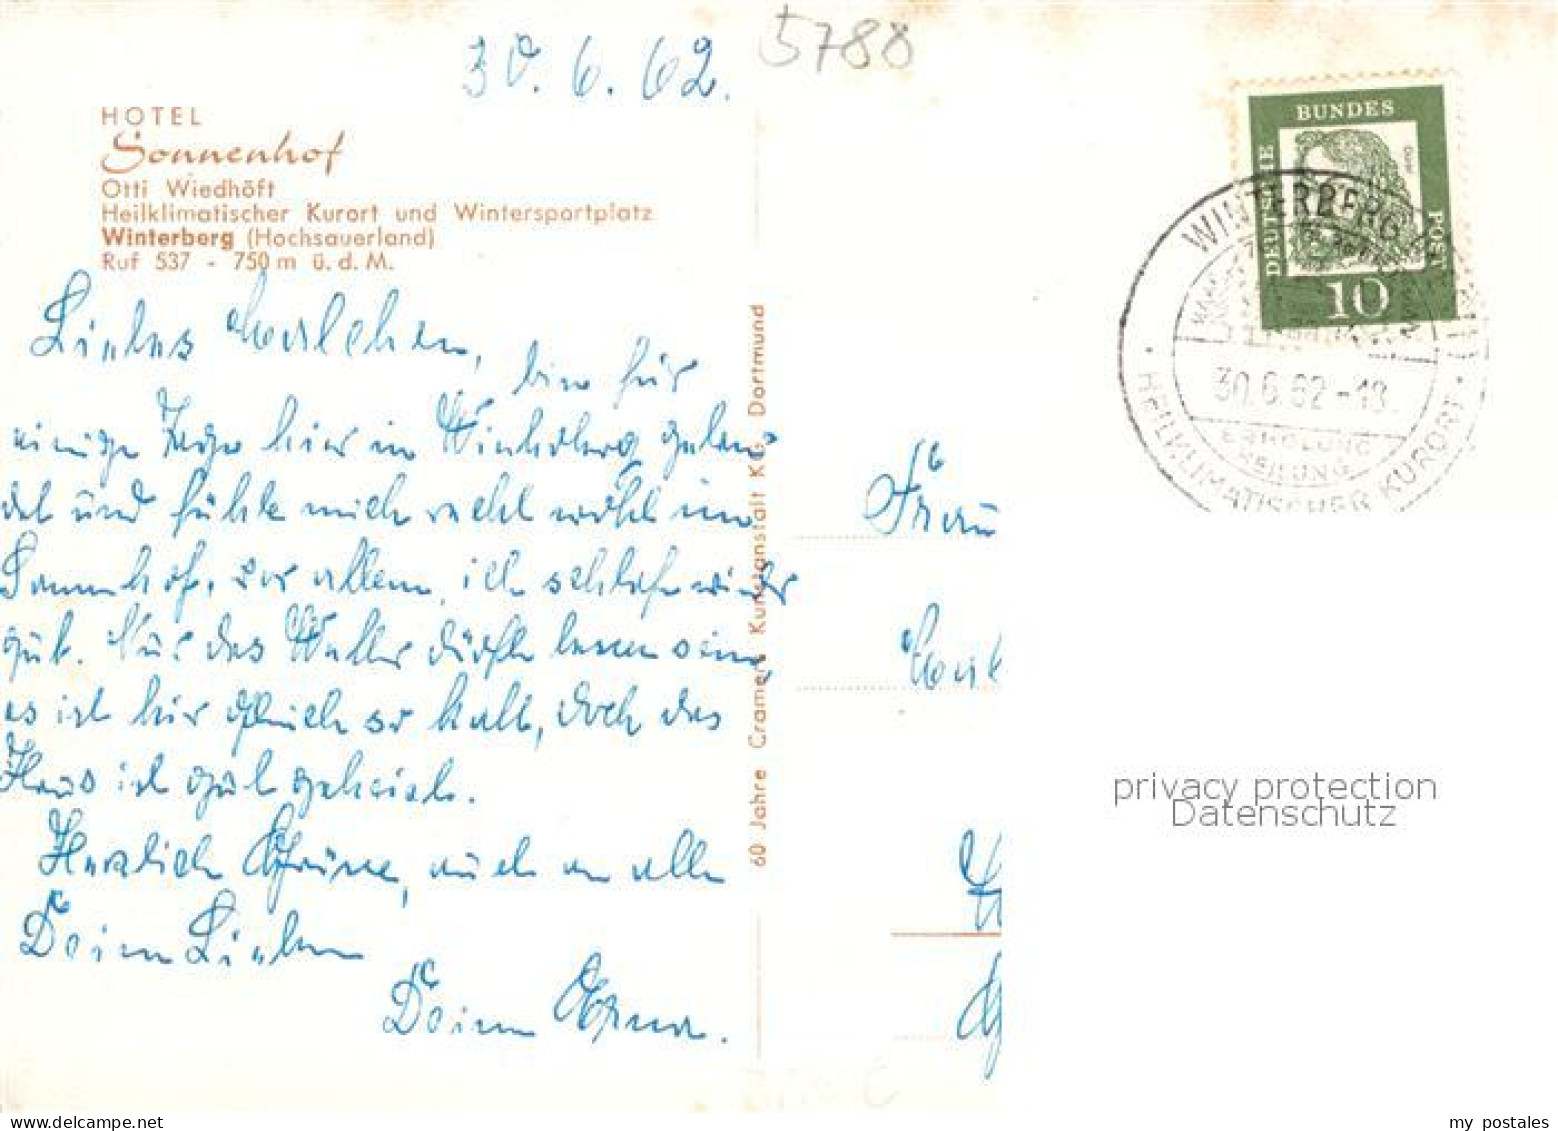 30. 6. 62.
5788
HOTEL
Sonnenhof
Otti Wiedhöft
Heilklimatischer Kurort und Wintersportplatz
Winterberg (Hochsauerland)
Ruf 537 - 750 m ü. d. M.
Liebes
bin für
einige Tage hier in Winterberg gelan-
det und fühle mich recht wohl im
Sonnenhof. Vor allem, ich schlafe wieder
gut. Nur das Wetter dürfte besser sein,
es ist hier gleich so kalt, doch das
Haus ist gut geheizt.
Herzliche Grüsse, auch an alle
Deine Lieben
Deine Erna.
60 Jahre Cramers Kunstanstalt KG, Dortmund
Frau
DEUTSCHE
BUNDES
POST
10
WINTERBERG
30.6.62-18
ERHOLUNG
HEILUNG
HEILKLIMATISCHER KURORT
privacy protection
Datenschutz
my postales